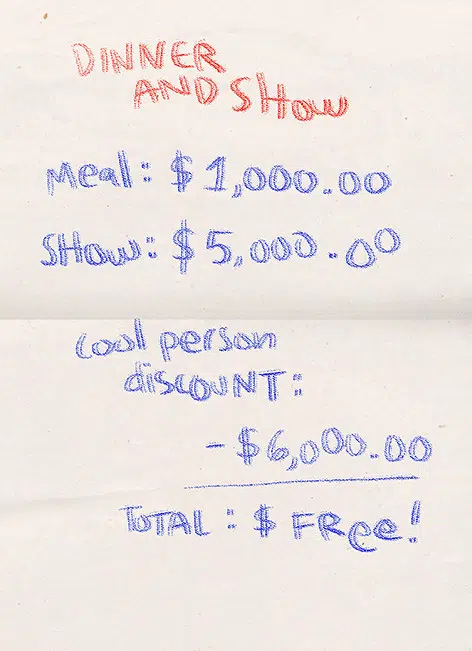 DINNER
AND SHow
Meal: $1,000.00
SHow: $5,000.00
cool person
discOUNT:
-$6,000.00
ToTAL: $ FRee!